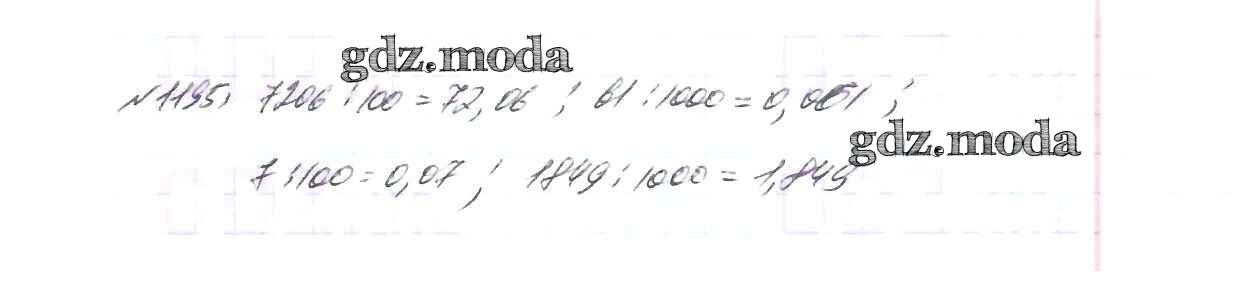 gdz.moda
№1195, 7206 : 100 = 72,06 ; 61 : 1000 = 0,061 ;
gdz.moda
7 : 100 = 0,07 ; 1849 : 1000 = 1,849